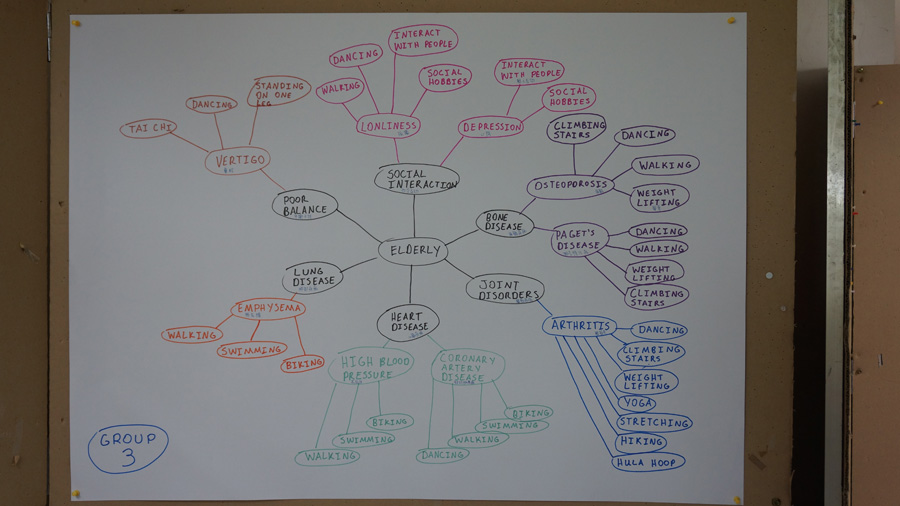 INTERACT
WITH PEOPLE
DANCING
WALKING
SOCIAL
HOBBIES
LONLINESS
INTERACT
WITH PEOPLE
SOCIAL
HOBBIES
DEPRESSION
STANDING
ON ONE
LEG
DANCING
TAI CHI
VERTIGO
CLIMBING
STAIRS
DANCING
WALKING
WEIGHT
LIFTING
OSTEOPOROSIS
SOCIAL
INTERACTION
POOR
BALANCE
BONE
DISEASE
PAGET'S
DISEASE
DANCING
WALKING
WEIGHT
LIFTING
CLIMBING
STAIRS
ELDERLY
LUNG
DISEASE
JOINT
DISORDERS
EMPHYSEMA
WALKING
SWIMMING
BIKING
HEART
DISEASE
ARTHRITIS
DANCING
CLIMBING
STAIRS
WEIGHT
LIFTING
YOGA
STRETCHING
HIKING
HULA HOOP
HIGH BLOOD
PRESSURE
BIKING
SWIMMING
WALKING
CORONARY
ARTERY
DISEASE
BIKING
SWIMMING
WALKING
DANCING
GROUP
3